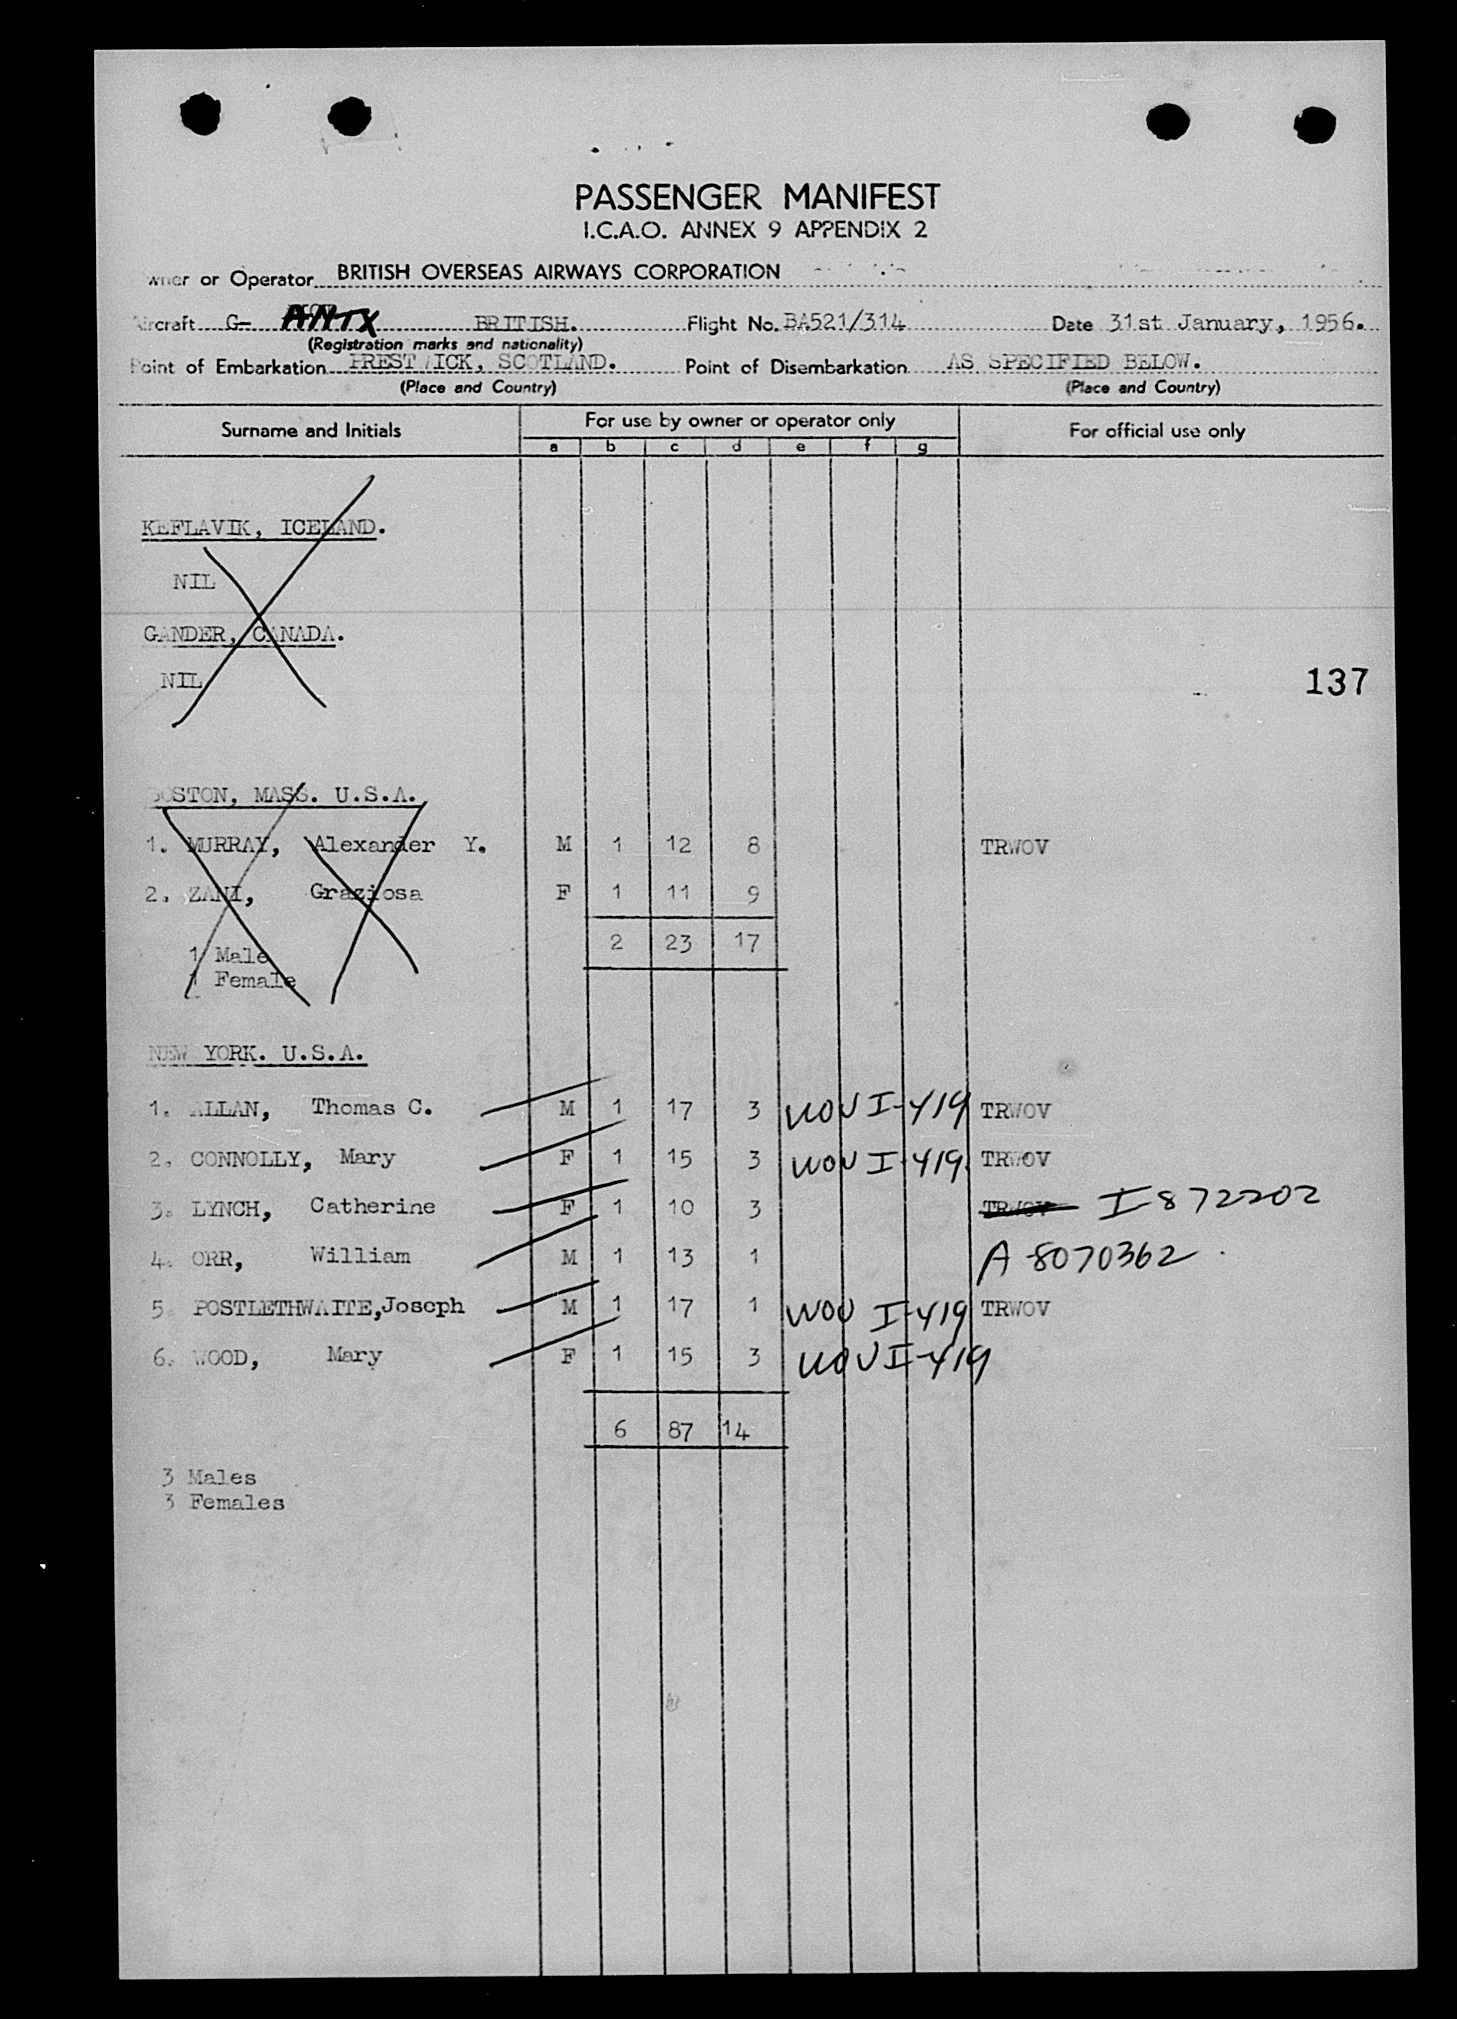 PASSENGER MANIFEST
I.C.A.O. ANNEX 9 APPENDIX 2
Owner or Operator BRITISH OVERSEAS AIRWAYS CORPORATION
Aircraft G- ANTX BRITISH. Flight No. BA521/314 Date 31st January, 1956.
(Registration marks and nationality)
Point of Embarkation PRESTWICK, SCOTLAND. Point of Disembarkation AS SPECIFIED BELOW.
(Place and Country) (Place and Country)
Surname and Initials For use by owner or operator only For official use only
a b c d e f g
KEFLAVIK, ICELAND.
NIL
GANDER, CANADA.
NIL
137
BOSTON, MASS. U.S.A.
1. MURRAY, Alexander Y. M 1 12 8 TRWOV
2. ZANI, Graziosa F 1 11 9
2 23 17
1 Male
1 Female
NEW YORK. U.S.A.
1. ALLAN, Thomas C. M 1 17 3 WOV I-419 TRWOV
2. CONNOLLY, Mary F 1 15 3 WOV I-419 TRWOV
3. LYNCH, Catherine F 1 10 3 TRWOV I-872202
4. ORR, William M 1 13 1 A-8070362
5. POSTLETHWAITE, Joseph M 1 17 1 WOV I-419 TRWOV
6. WOOD, Mary F 1 15 3 WOV I-419
6 87 14
3 Males
3 Females